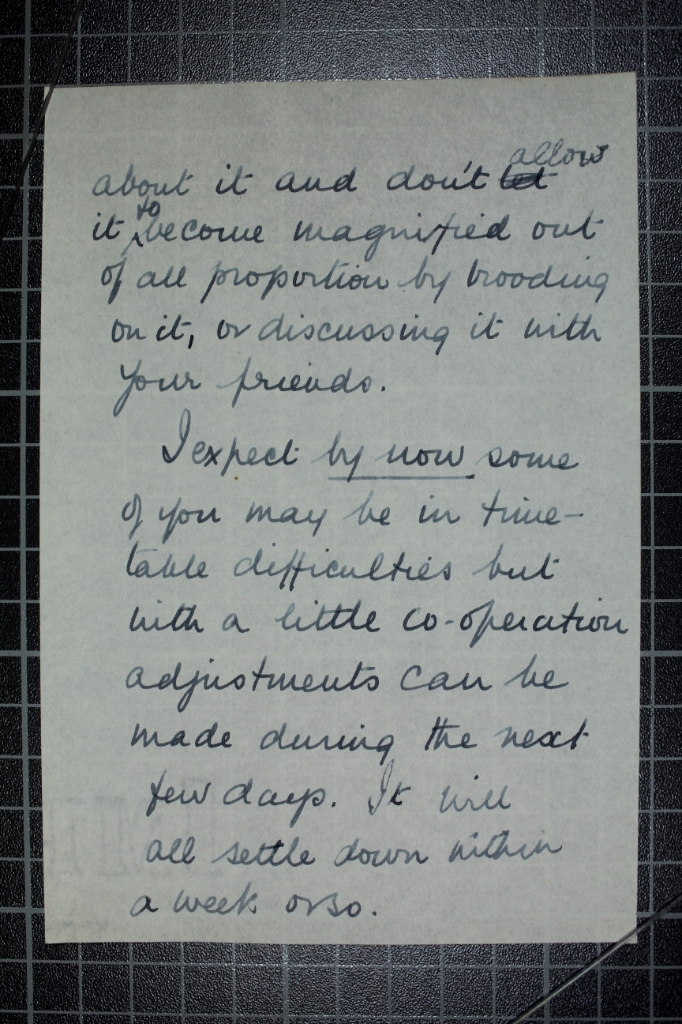 about it and don't let allow
it to become magnified out
of all proportion by brooding
on it, or discussing it with
your friends.
I expect by now some
of you may be in time-
table difficulties but
with a little co-operation
adjustments can be
made during the next
few days. It will
all settle down within
a week or so.